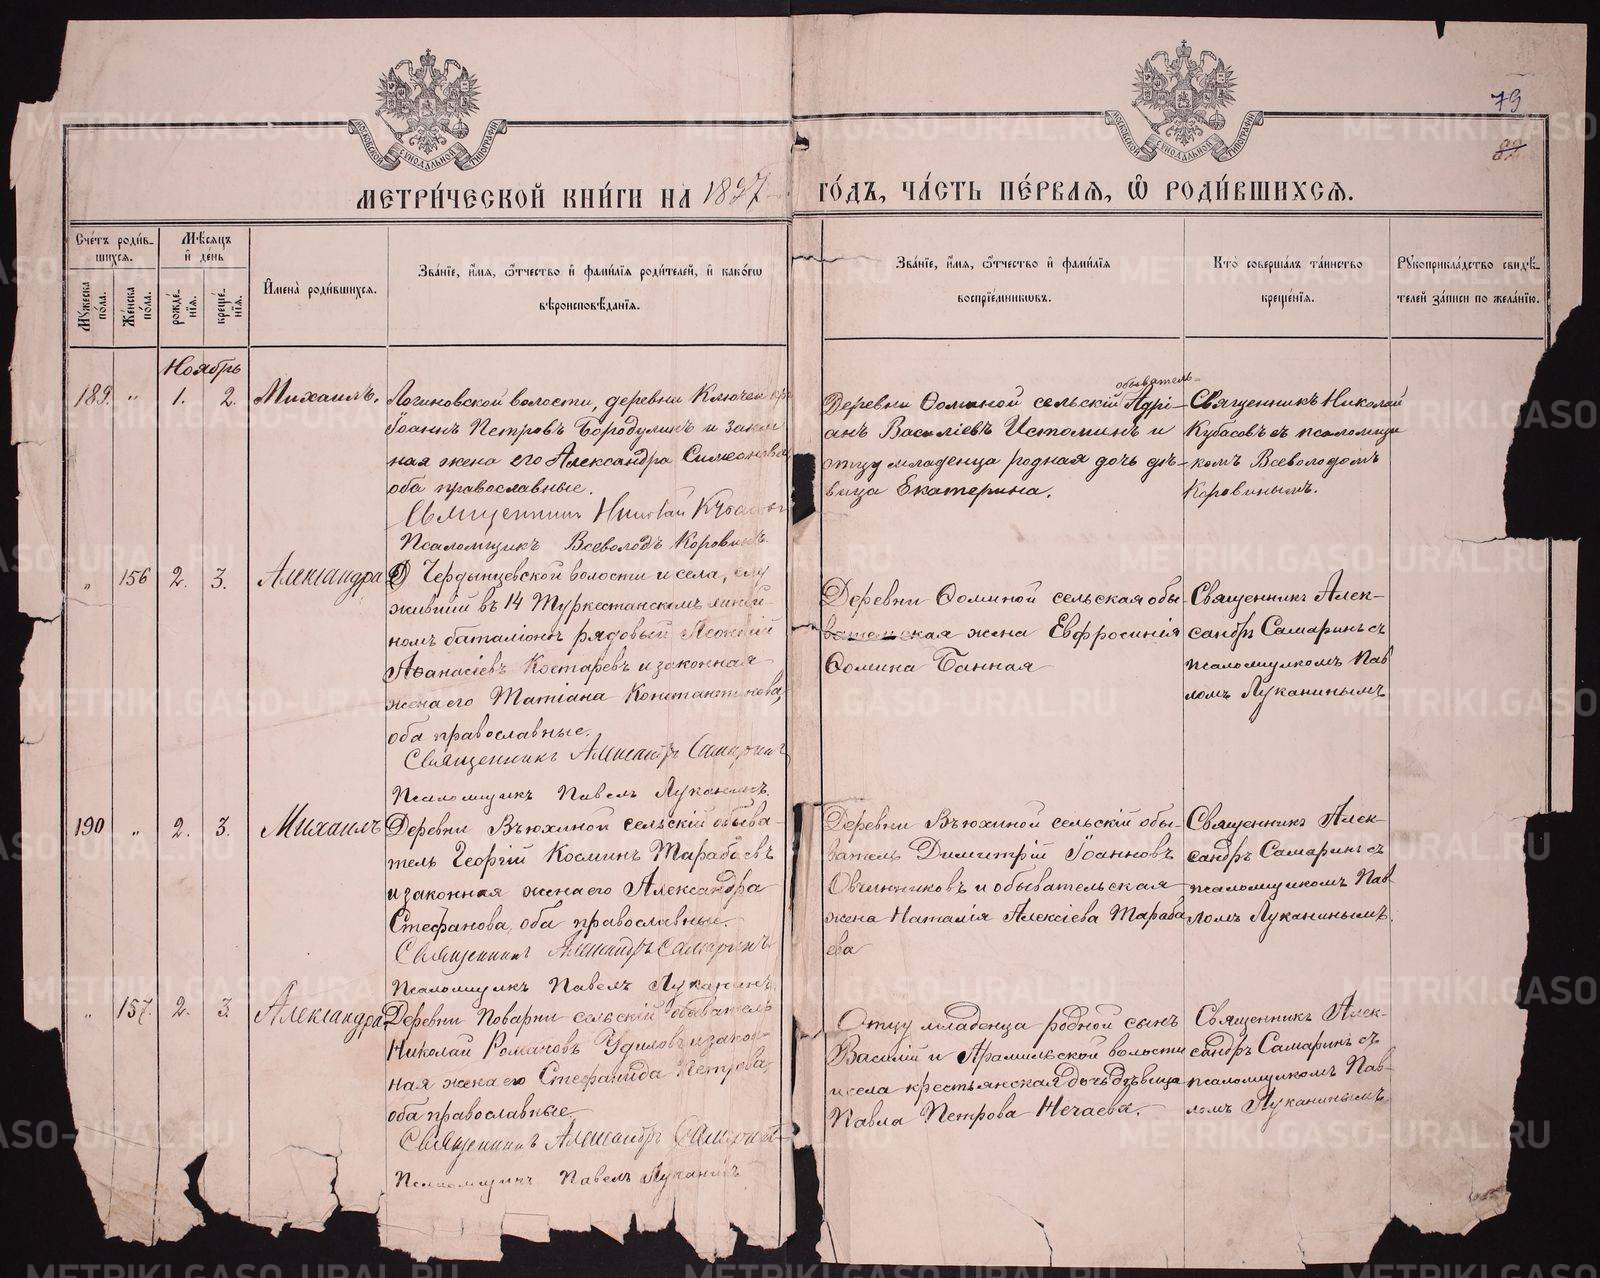 79
82
МОСКОВСКОЙ СѴНОДАЛЬНОЙ ТИПОГРАФІИ
МОСКОВСКОЙ СѴНОДАЛЬНОЙ ТИПОГРАФІИ
МЕТРИ́ЧЕСКОЙ КНИ́ГИ НА 1897 ГО́ДЪ, ЧА́СТЬ ПЕ́РВАЯ, Ѿ РОДИ́ВШИХСЯ.
Сче́тъ роди́в-
шихся.
Мꙋжеска по́ла.
Же́нска по́ла.
Мѣ́сяцъ
и де́нь
рожде́нія.
креще́нія.
Имена̀ роди́вшихся.
Зва́ніе, и́мя, ѻ́тчество и фами́лія роди́телей, и како́гѡ
вѣроисповѣ́данія.
Зва́ніе, и́мя, ѻ́тчество и фами́лія
воспріе́мникѡвъ.
Кто̀ соверша́лъ та́инство
креще́нія.
Рꙋкоприкла́дство свидѣ́-
телей за́писи по жела́нію.
Ноябрь
189. " 1. 2. Михаилъ.
Логиновской волости, деревни Ключей кр
Іоаннъ Петровъ Бородулинъ и закон
ная жена его Александра Симеонова
оба православные.
Священникъ Николай Кубасовъ
Псаломщикъ Всеволодъ Коровинъ.
обыватель
Деревни Ѳоминой сельскій Адрі-
анъ Василіевъ Истоминъ и
отцу младенца родная дочь дѣ-
вица Екатерина.
Священникъ Николай
Кубасовъ съ псаломщи
комъ Всеволодомъ
Коровинымъ.
" 156 2. 3. Александра
Чердынцевской волости и села, слу
жившій въ 14 Туркестанскомъ линей-
номъ баталіонѣ рядовый Леонтій
Аѳанасіевъ Костаревъ и законная
жена его Татіана Константинова,
оба православные.
Священникъ Александръ Самаринъ
Псаломщикъ Павелъ Луканинъ.
Деревни Ѳоминой сельская обы-
вательская жена Евфросинія
Ѳомина Банная
Священникъ Алек-
сандръ Самаринъ съ
псаломщикомъ Пав
ломъ Луканинымъ
190 " 2. 3. Михаилъ
Деревни Вьюхиной сельскій обыва-
тель Георгій Косминъ Тарабаевъ
и законная жена его Александра
Стефанова, оба православные.
Священникъ Александръ Самаринъ
Псаломщикъ Павелъ Луканинъ.
Деревни Вьюхиной сельскій обы-
ватель Димитрій Іоанновъ
Овчинниковъ и обывательская
жена Наталія Алексіева Тараба
ева
Священникъ Алек-
сандръ Самаринъ съ
псаломщикомъ Пав-
ломъ Луканинымъ.
" 157. 2. 3. Александра
Деревни Поварни сельскій обыватель
Николай Романовъ Удиловъ и закон-
ная жена его Стефанида Петрова,
оба православные.
Священникъ Александръ Самаринъ
Псаломщикъ Павелъ Луканинъ
Отцу младенца родной сынъ
Василій и Арамильской волости
и села крестьянская дочь дѣвица
Павла Петрова Нечаева.
Священникъ Алек-
сандръ Самаринъ съ
псаломщикомъ Пав-
ломъ Луканинымъ
METRIKI.GASO-URAL.RU